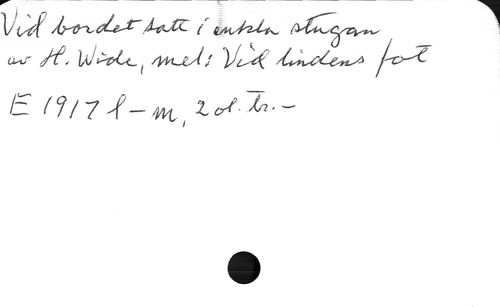 Vid bordet satt i enkla stugan
av H. Wide, mel: Vid lindens fot
E 1917 l-m, 2 ol. tr.-